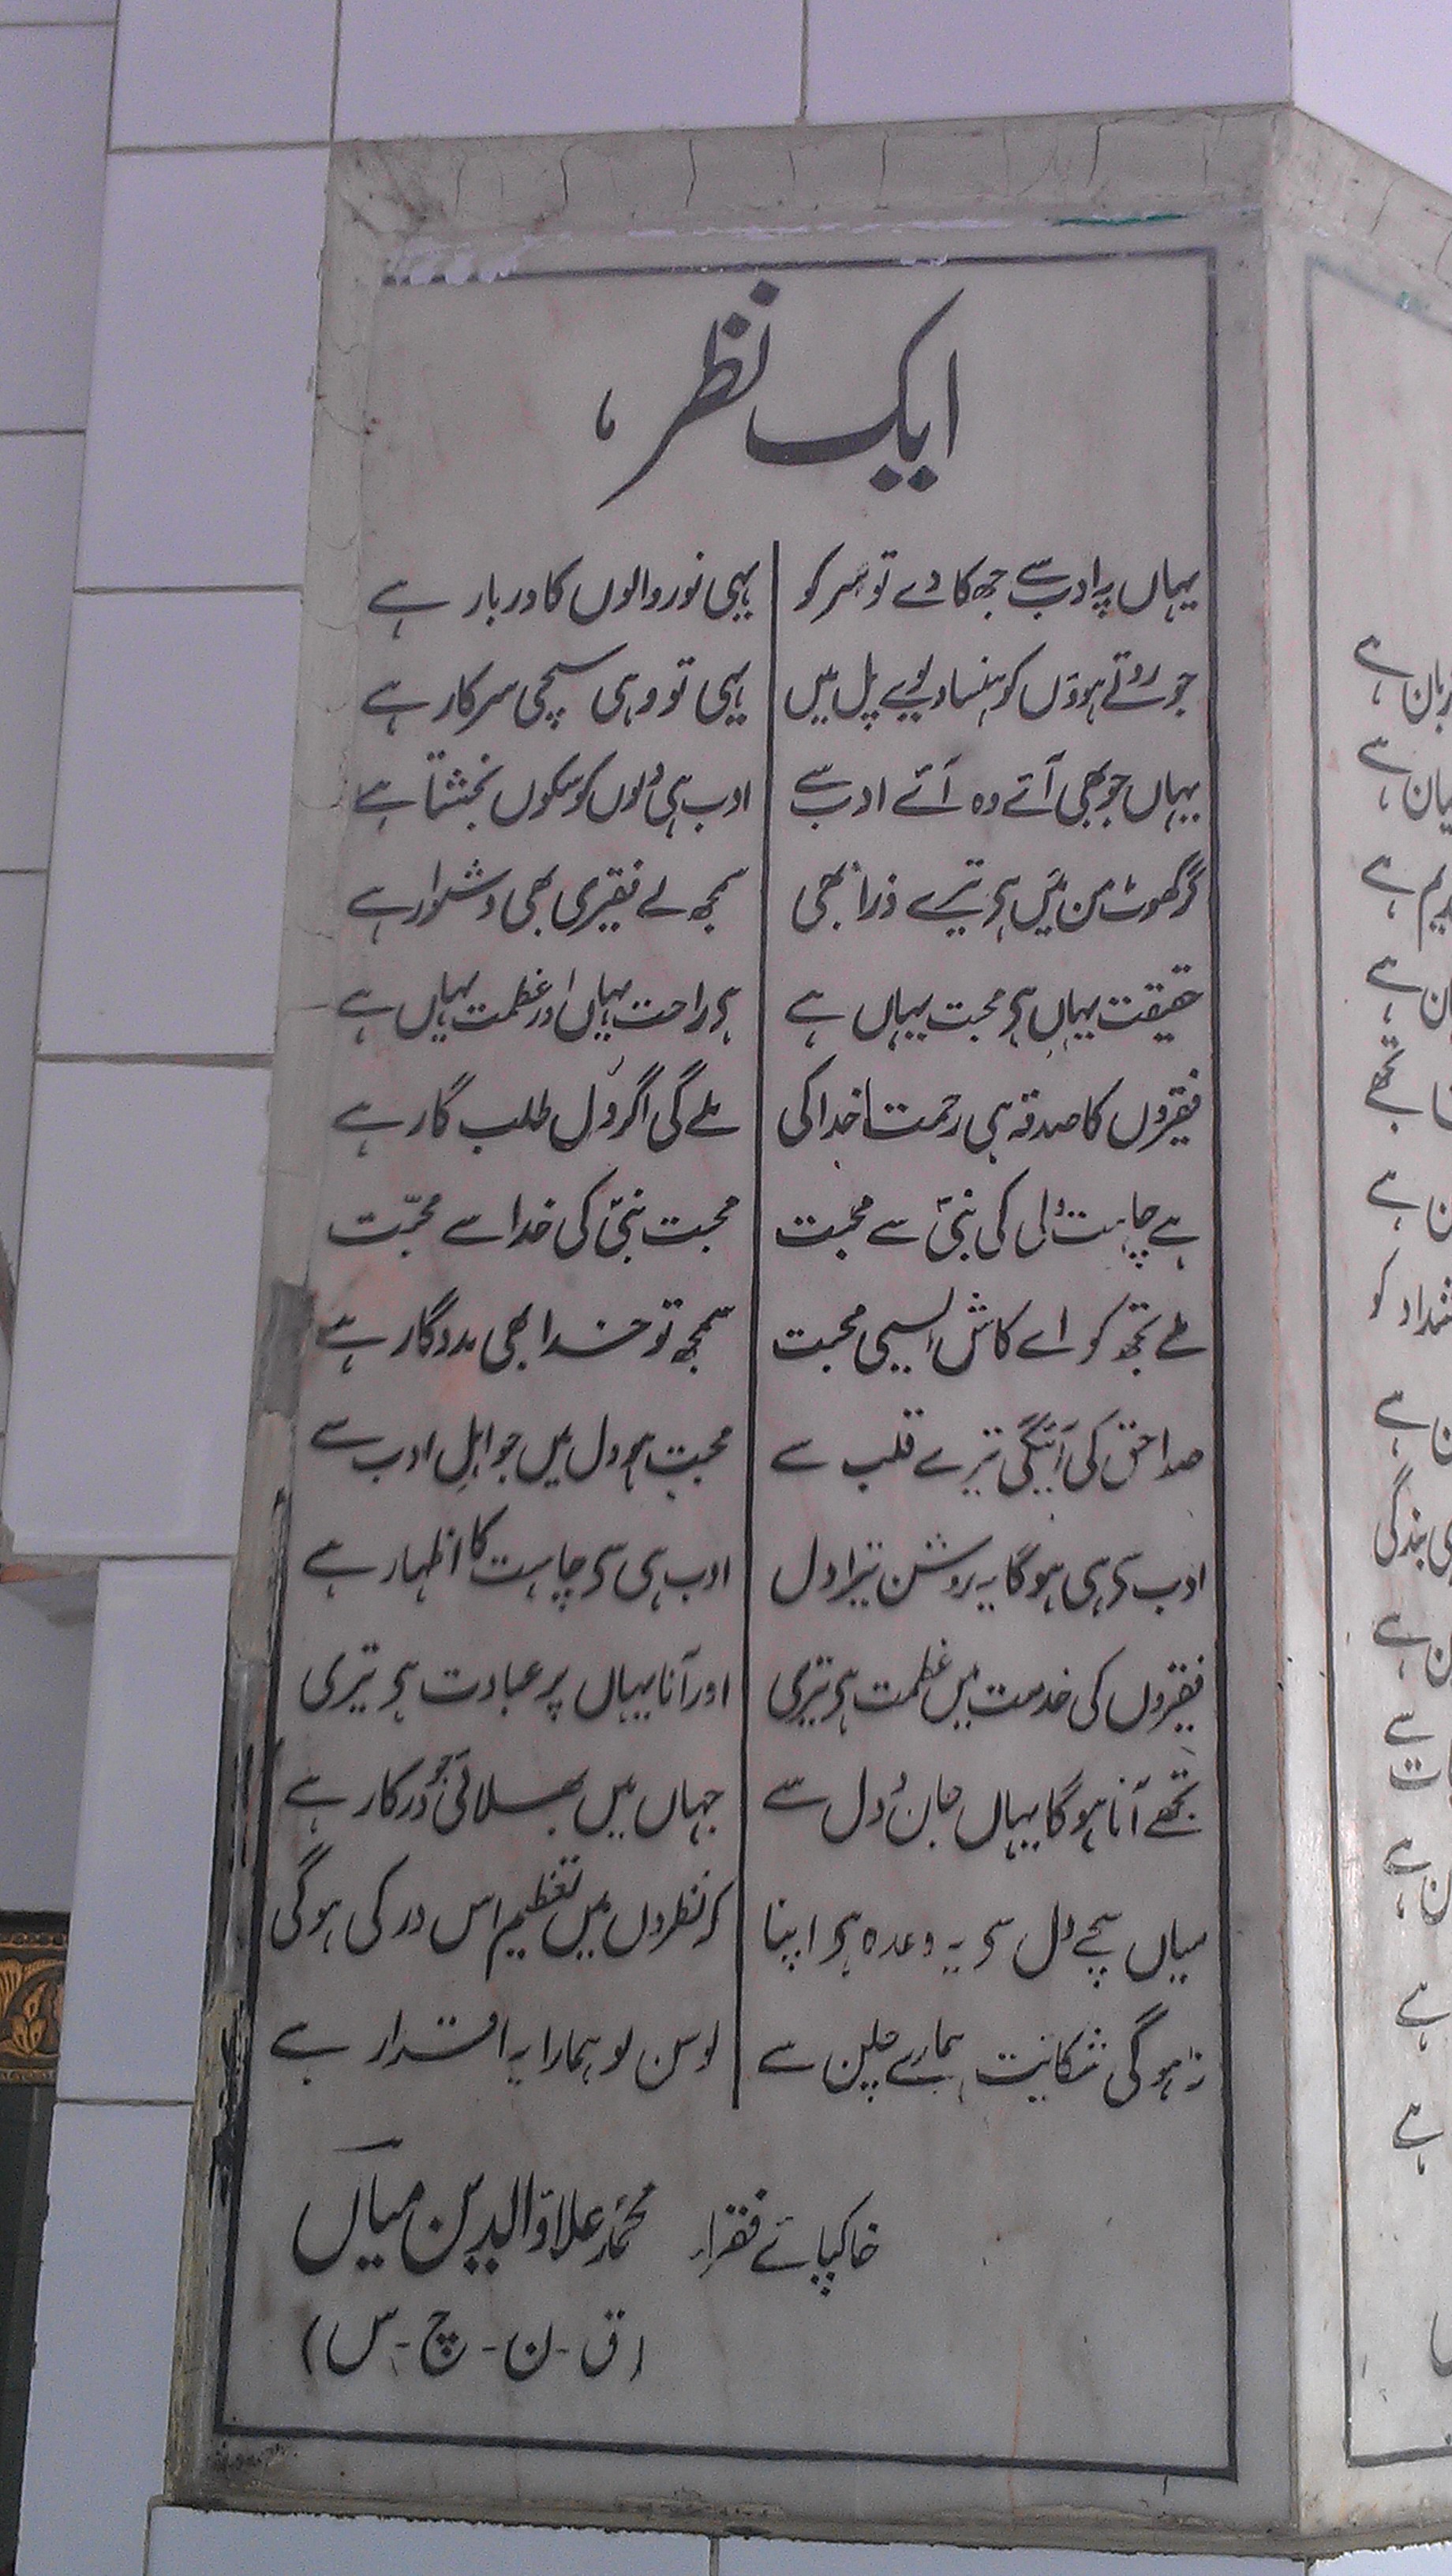 ایک نظر
یہاں پر ادب سے جھکا دے تو سر کو یہی نور والوں کا دربار ہے
جو روتے ہوؤں کو ہنسا دیوے پل میں یہی تو وہی سچی سرکار ہے
یہاں جو بھی آئے وہ آئے ادب سے ادب ہی دلوں کو سکوں بخشتا ہے
گر کھوٹ من میں ہے تیرے ذرا بھی سمجھ لے فقیری بھی دشوار ہے
حقیقت یہاں ہے محبت یہاں ہے ہے راحت یہاں اور عظمت یہاں ہے
فقیروں کا صدقہ ہی رحمت خدا کی ملے گی اگر دل طلب گار ہے
ہے چاہت ولی کی نبیؐ سے محبت محبت نبیؐ کی خدا سے محبّت
ملے تجھ کو اے کاش ایسی محبت سمجھ تو خدا بھی مددگار ہے
صدا حق کی آئیگی تیرے قلب سے محبت ہو دل میں جو اہلِ ادب سے
ادب سے ہی ہوگا یہ روشن تیرا دل ادب ہی سے چاہت کا اظہار ہے
فقیروں کی خدمت میں عظمت ہے تیری اور آنا یہاں پر عبادت ہے تیری
تجھے آنا ہوگا یہاں جان و دل سے جہاں میں بھلائی جو درکار ہے
میاں سچے دل سے یہ وعدہ ہے اپنا کہ نظروں میں تعظیم اس در کی ہوگی
نہ ہوگی شکایت ہمارے چلن سے لو سن لو ہمارا یہ اقرار ہے
خاکپائے فقراء محمد علاؤالدین میاں
(ق - ن - چ - س)
ہے
سے
ہے
ہے
تجھے
ہے
شداد کو
ہے
بندگی
ہے
سے
ہے
ہے
ہے